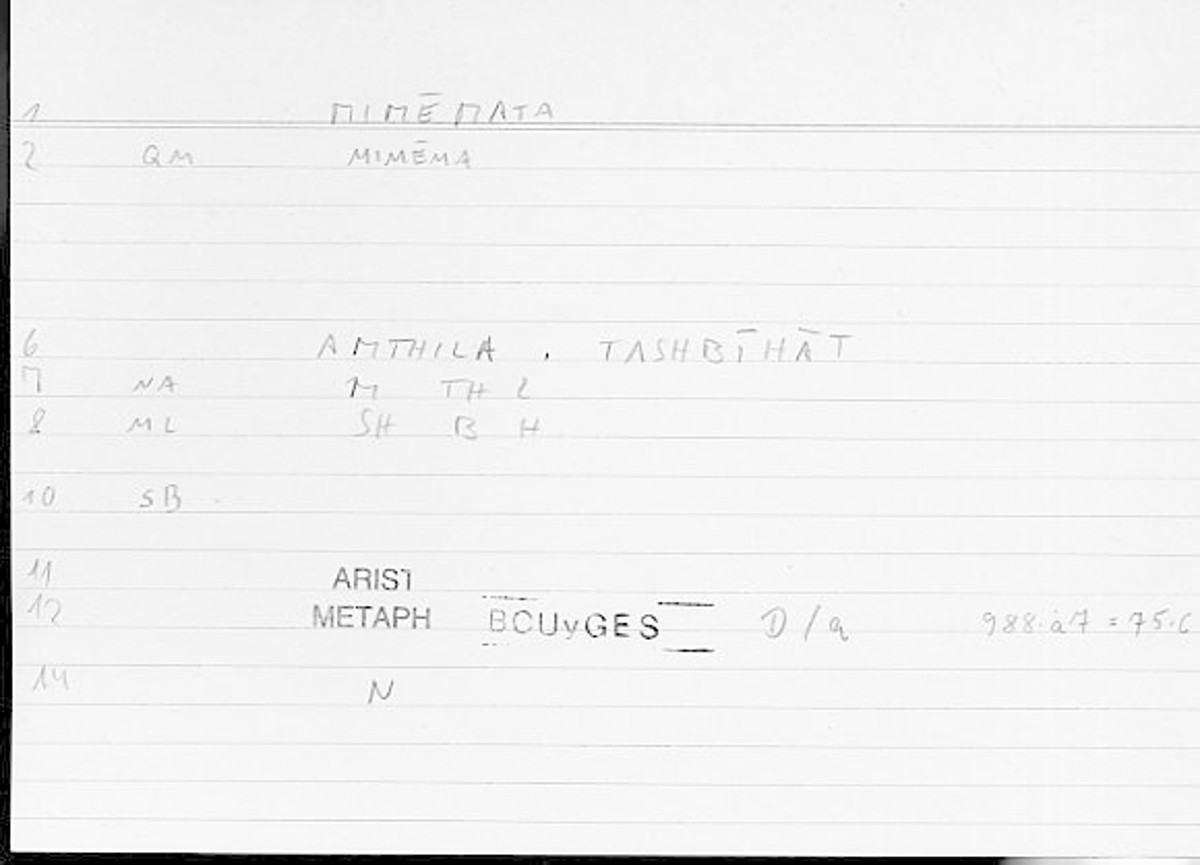 1 MIMĒMATA
2 QM MIMĒMA
6 AMTHILA , TASHBĪHĀT
7 NA M TH L
8 ML SH B H
10 SB
11 ARIST
12 METAPH BOUyGES D/a 988.a7 = 75.6
14 N